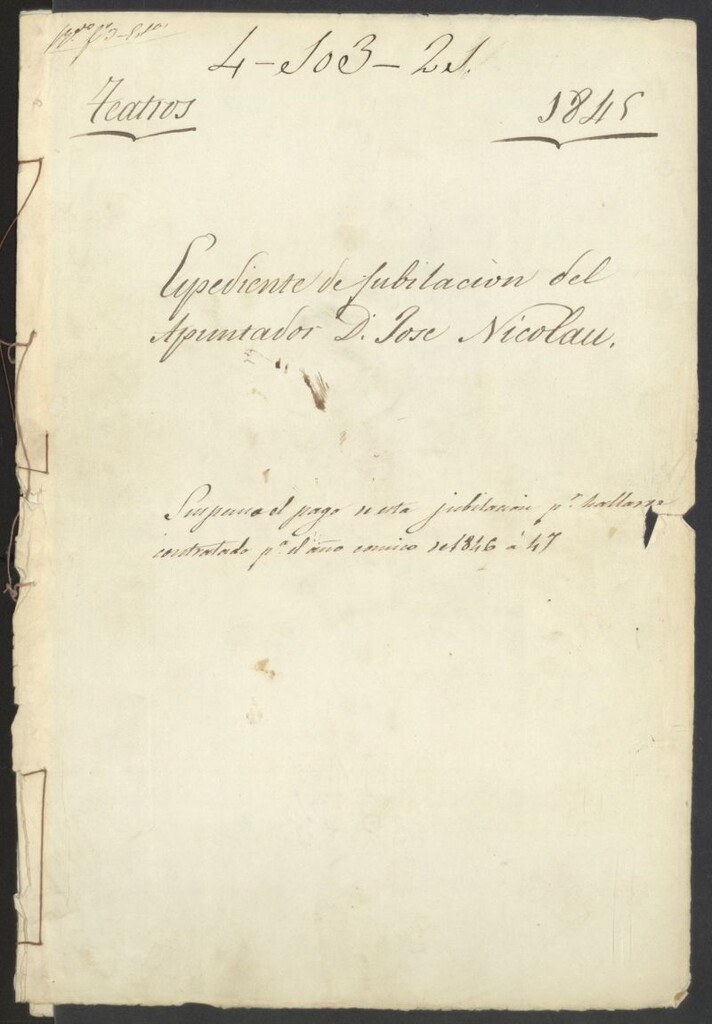 4-103-21.
Teatros
1845
Expediente de Jubilacion del
Apuntador D. Jose Nicolau.
el pago de esta jubilacion pr. hallarse
contratado pa. el año comico de 1846 á 47